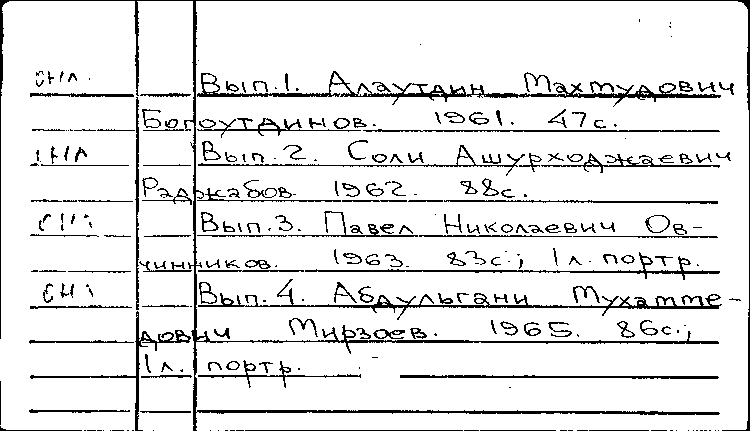 Вып.1. Алаутдин Махмудович
Богоутдинов. 1961. 47с.
Вып.2. Соли Ашурходжаевич
Раджабов. 1962. 88с.
Вып.3. Павел Николаевич Ов-
чинников. 1963. 83с.; 1л. портр.
Вып.4. Абдульгани Мухамме-
дович Мирзоев. 1965. 86с.;
1л. портр.